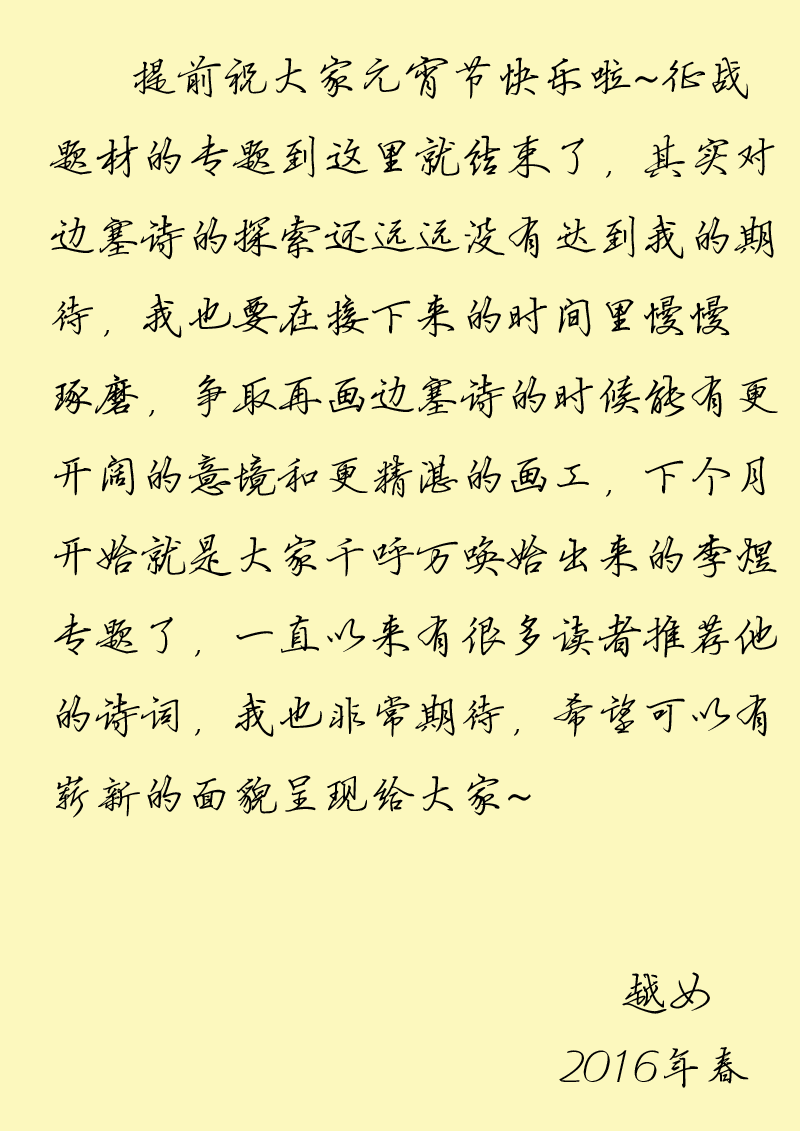 提前祝大家元宵节快乐啦~征战
题材的专题到这里就结束了，其实对
边塞诗的探索还远远没有达到我的期
待，我也要在接下来的时间里慢慢
琢磨，争取再画边塞诗的时候能有更
开阔的意境和更精湛的画工，下个月
开始就是大家千呼万唤始出来的李煜
专题了，一直以来有很多读者推荐他
的诗词，我也非常期待，希望可以有
崭新的面貌呈现给大家~
越女
2016年春